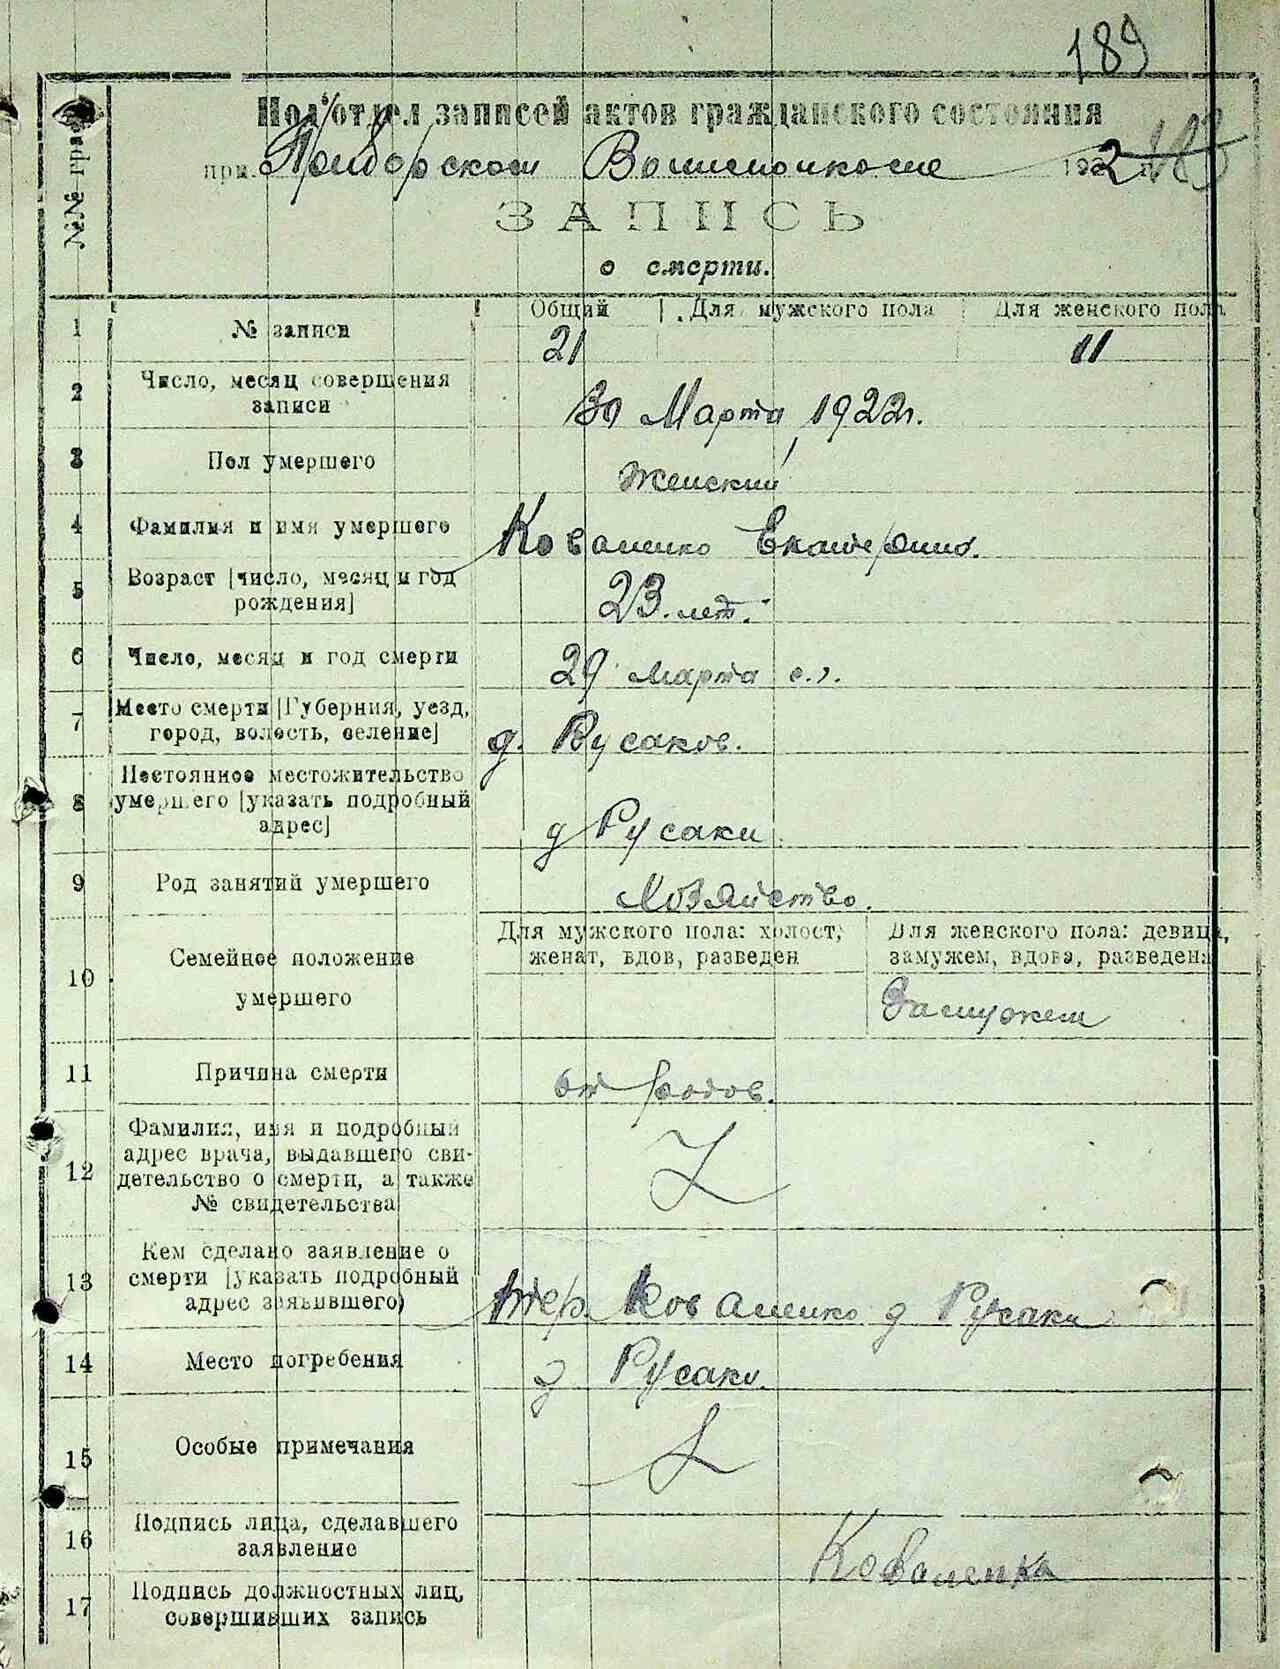 189
Подотдел записей актов гражданского состояния
при Приборском Волисполкоме 1922 г. 183
ЗАПИСЬ
о смерти.
№№ гра
Общий Для мужского пола Для женского пола
1 № записи 21 11
2 Число, месяц совершения
записи 30 Марта 1922г.
3 Пол умершего Женский
4 Фамилия и имя умершего Коваленко Екатерина.
5 Возраст [число, месяц и год
рождения] 23 лет.
6 Число, месяц и год смерти 29 марта с.г.
7 Место смерти [Губерния, уезд,
город, волость, селение] д. Русаков.
8 Постоянное местожительство
умершего [указать подробный
адрес] д Русаки.
9 Род занятий умершего Хозяйство.
10 Семейное положение
умершего
Для мужского пола: холост,
женат, вдов, разведен
Для женского пола: девица,
замужем, вдова, разведена
Замужем
11 Причина смерти от родов.
12 Фамилия, имя и подробный
адрес врача, выдавшего сви-
детельство о смерти, а также
№ свидетельства
13 Кем сделано заявление о
смерти [указать подробный
адрес заявившего) Коваленко д Русаки
14 Место погребения д Русаки
15 Особые примечания
16 Подпись лица, сделавшего
заявление Коваленка
17 Подпись должностных лиц,
совершивших запись